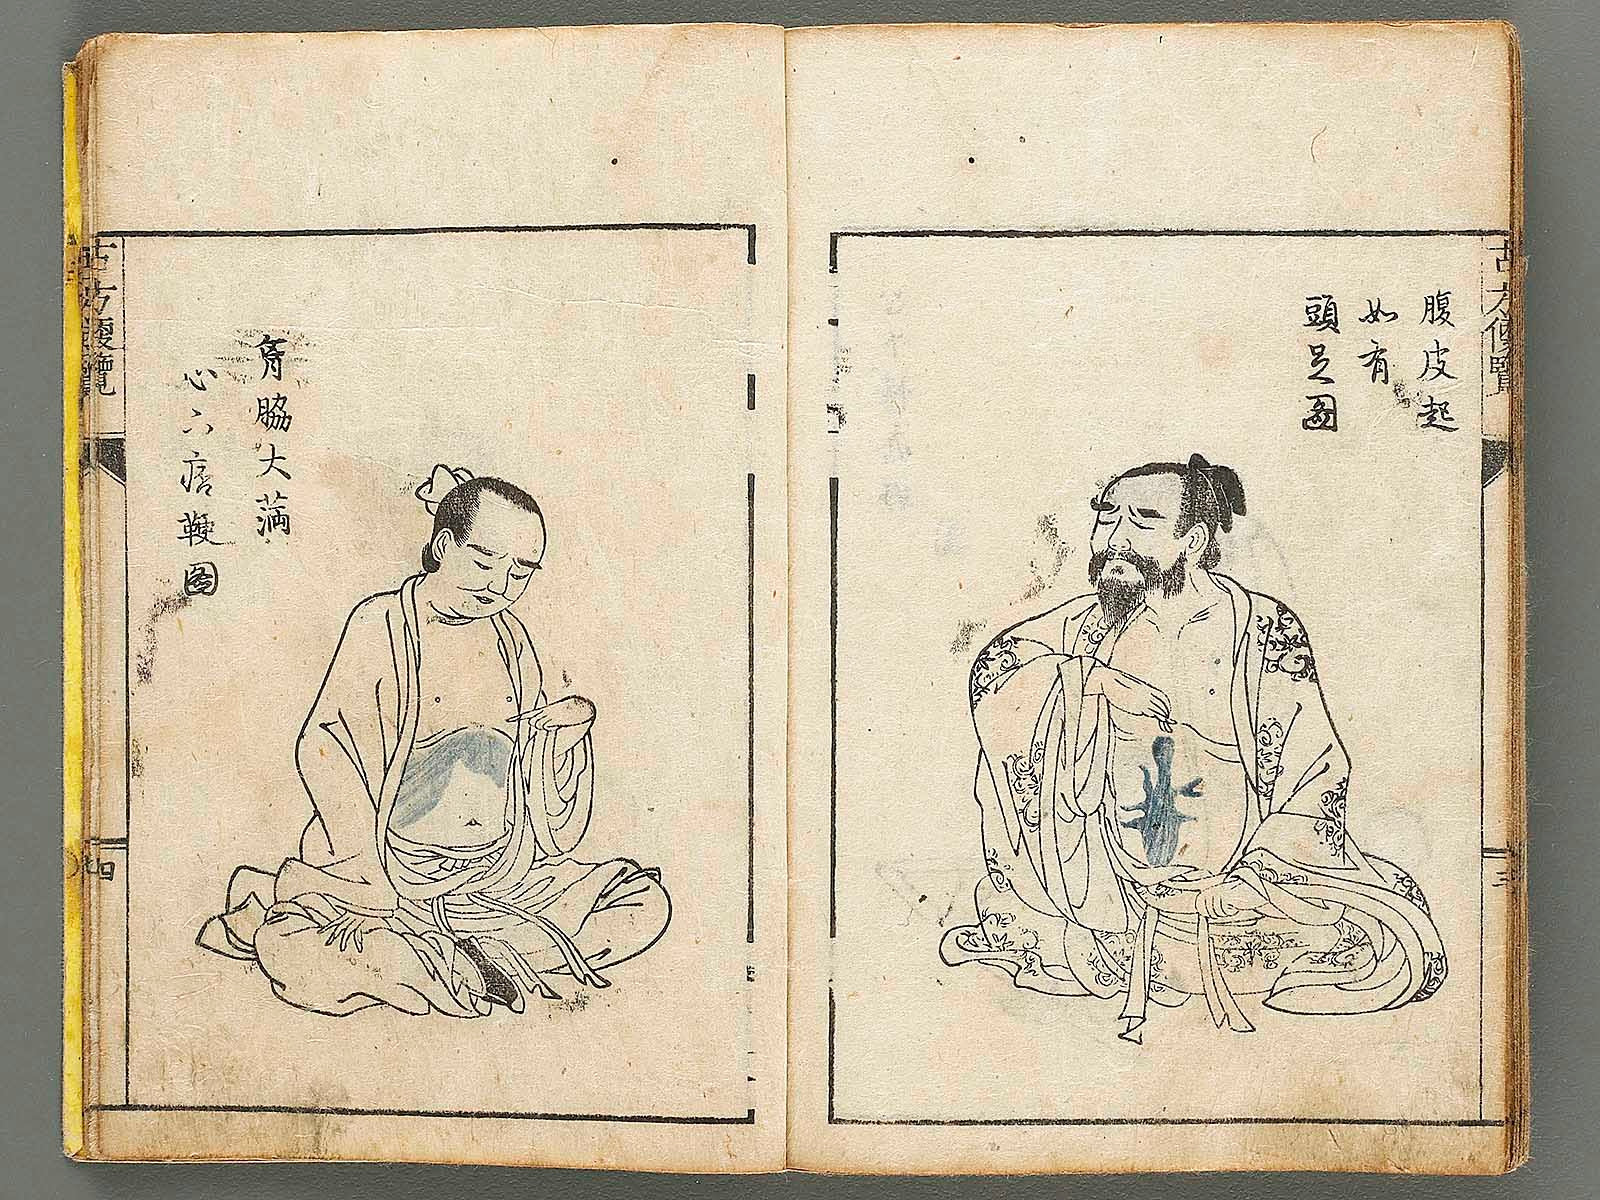 腹皮起
如有
頭足図
胷脇大満
心下痞鞕図
古方便覧
三
古方便覧
四